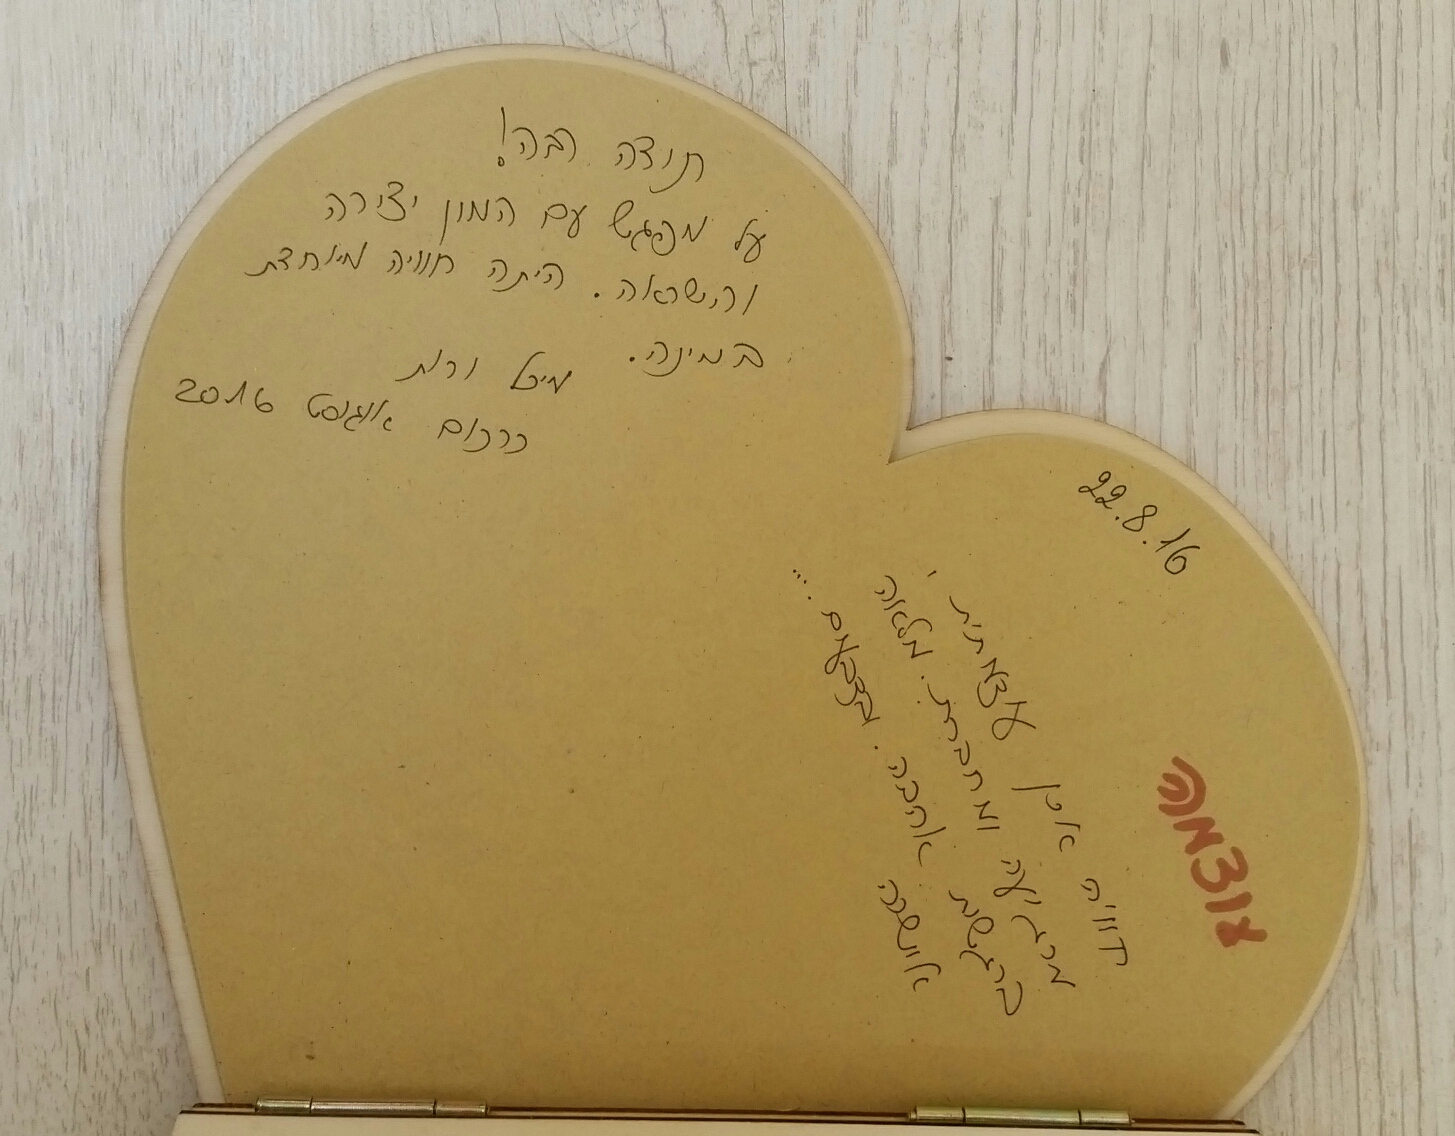 תודה רבה!
על מפגש עם המון יצירה
והשראה. היתה חוויה מיוחדת
במינה.
מיכל ורות
כרכום אוגוסט 2016
22.8.16
עוצמה
חוויה עוצמתית,
מרגיעה ומחברת. מלאה
ברגשות אהבה. ובצבעים...